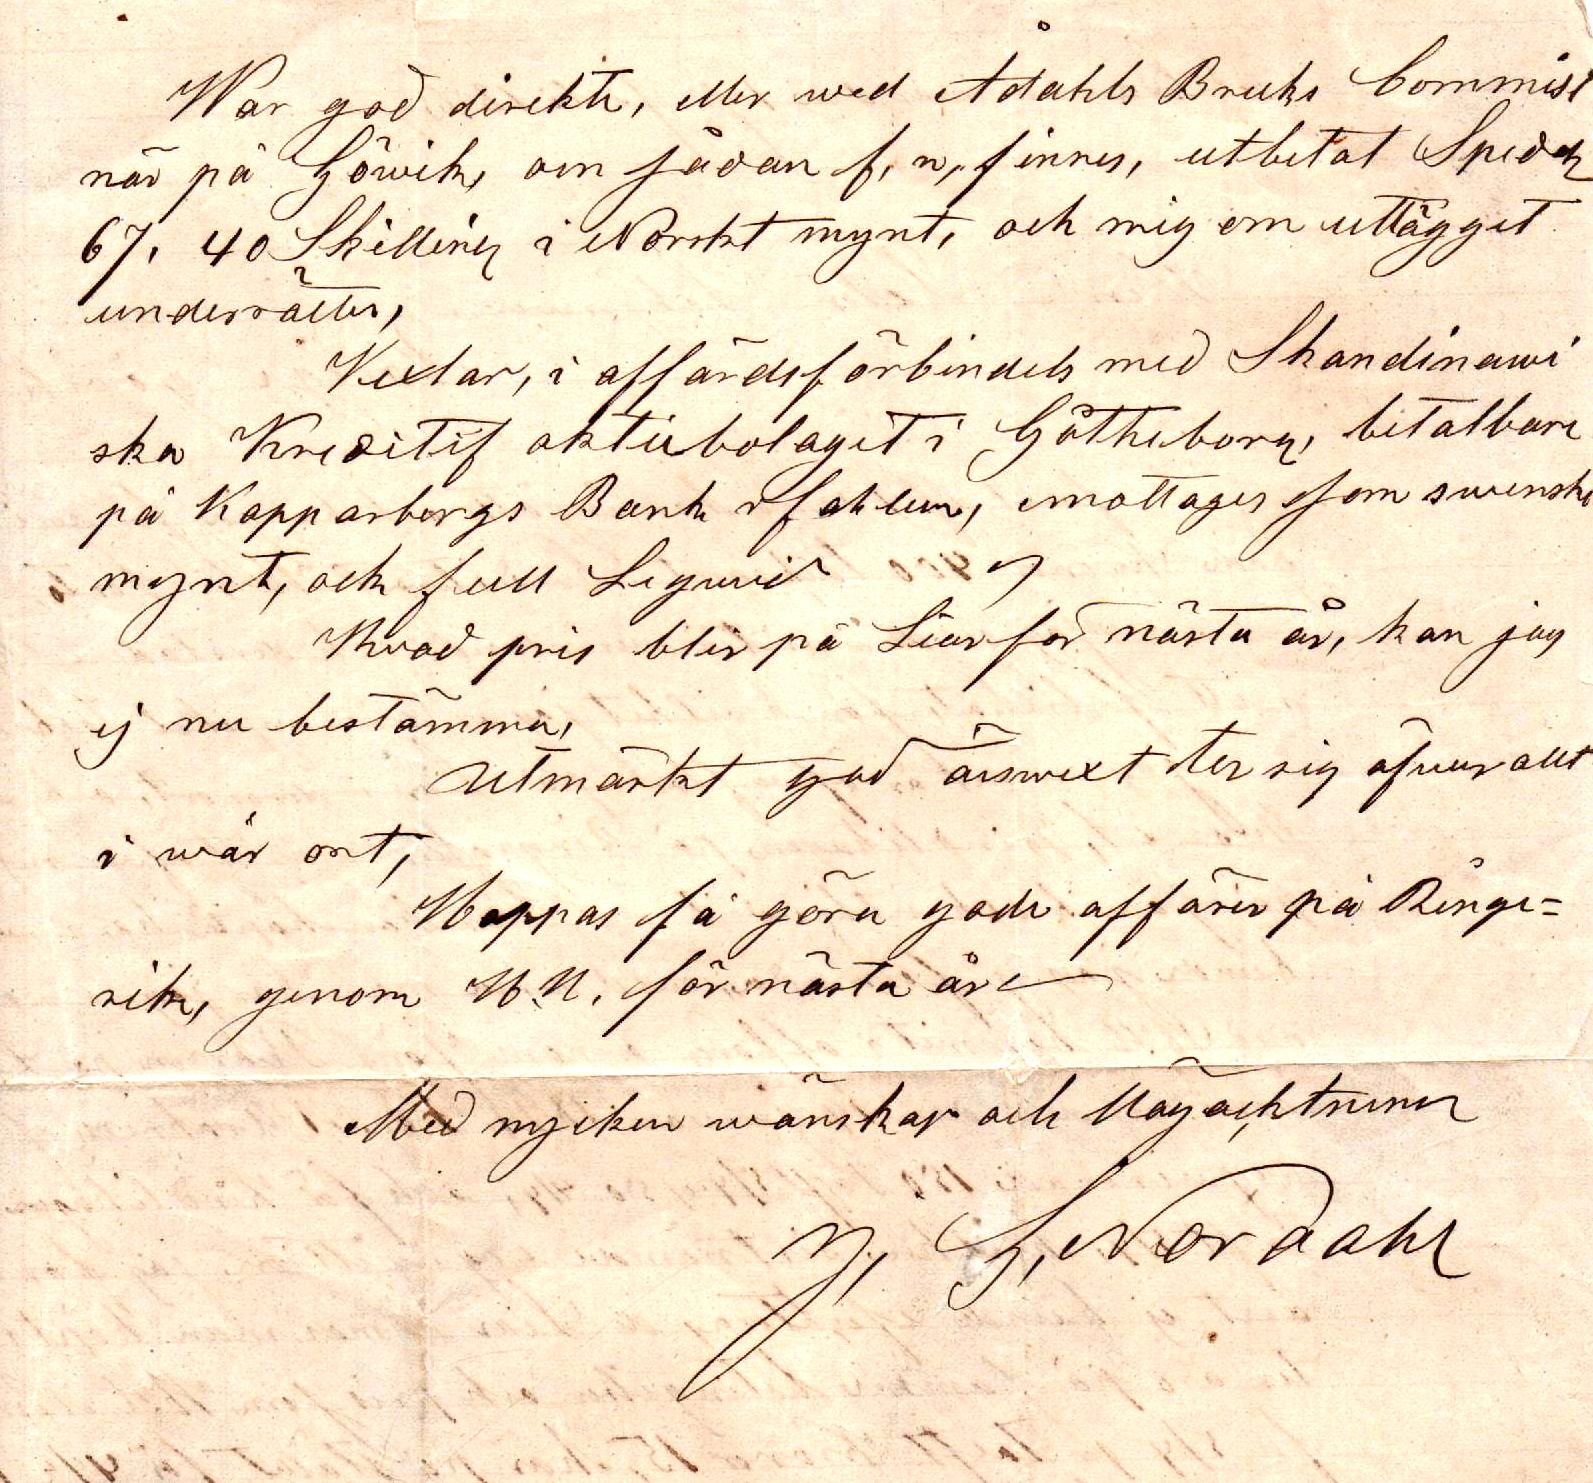 War god direkte, eller wed Ådahls Bruks Commisi
när på Göwik, om sådan f, n, finnes, utbetat Specd
67, 40 Skilling i Norskt mynt, och mig om uttägget
underrätter,
Vexlar, i affärdsförbindels med Skandinawi
ska Kreditif aktiebolaget i Götheborg, betalbare
på Kopparbergs Bank i Fahlun, emottages som swenskt
mynt, och full Liqwid
Hvad pris blir på Liar for nästa år, kan jag
ej nu bestämma,
Utmärkt god årswext ter sig öfver allt
i wår ort,
Hoppas få göra gode affärer på Ringe=
rike, genom H.H. för nästa år
Med myken wänskap och Högacktning
J, G, Nordahl